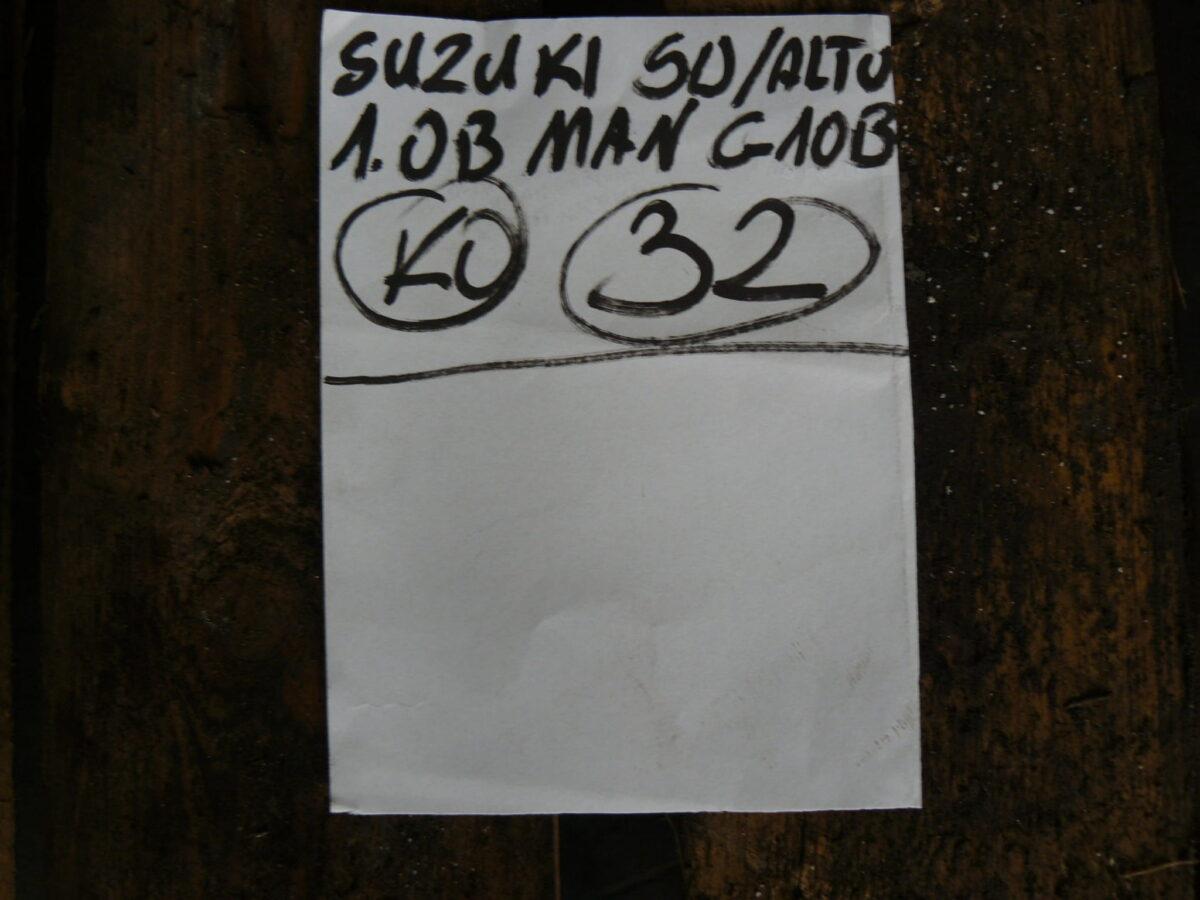 SUZUKI SU/ALTO
1.0B MAN G10B
KO 32